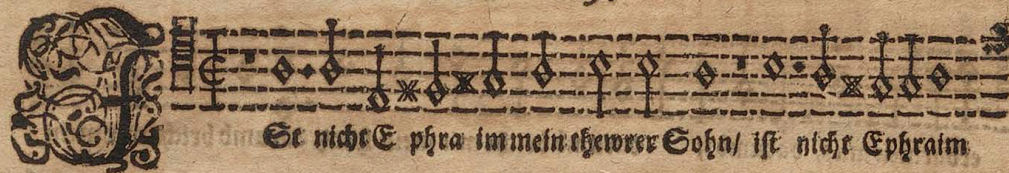 ISt nicht E phra im mein thewrer Sohn/ ist nicht Ephraim